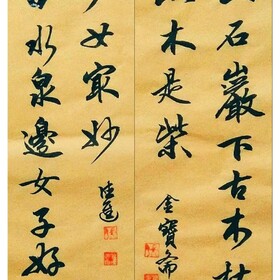 山石巖下古木枯
此木是柴
金寶齋
白水泉邊女子好
少女冣妙